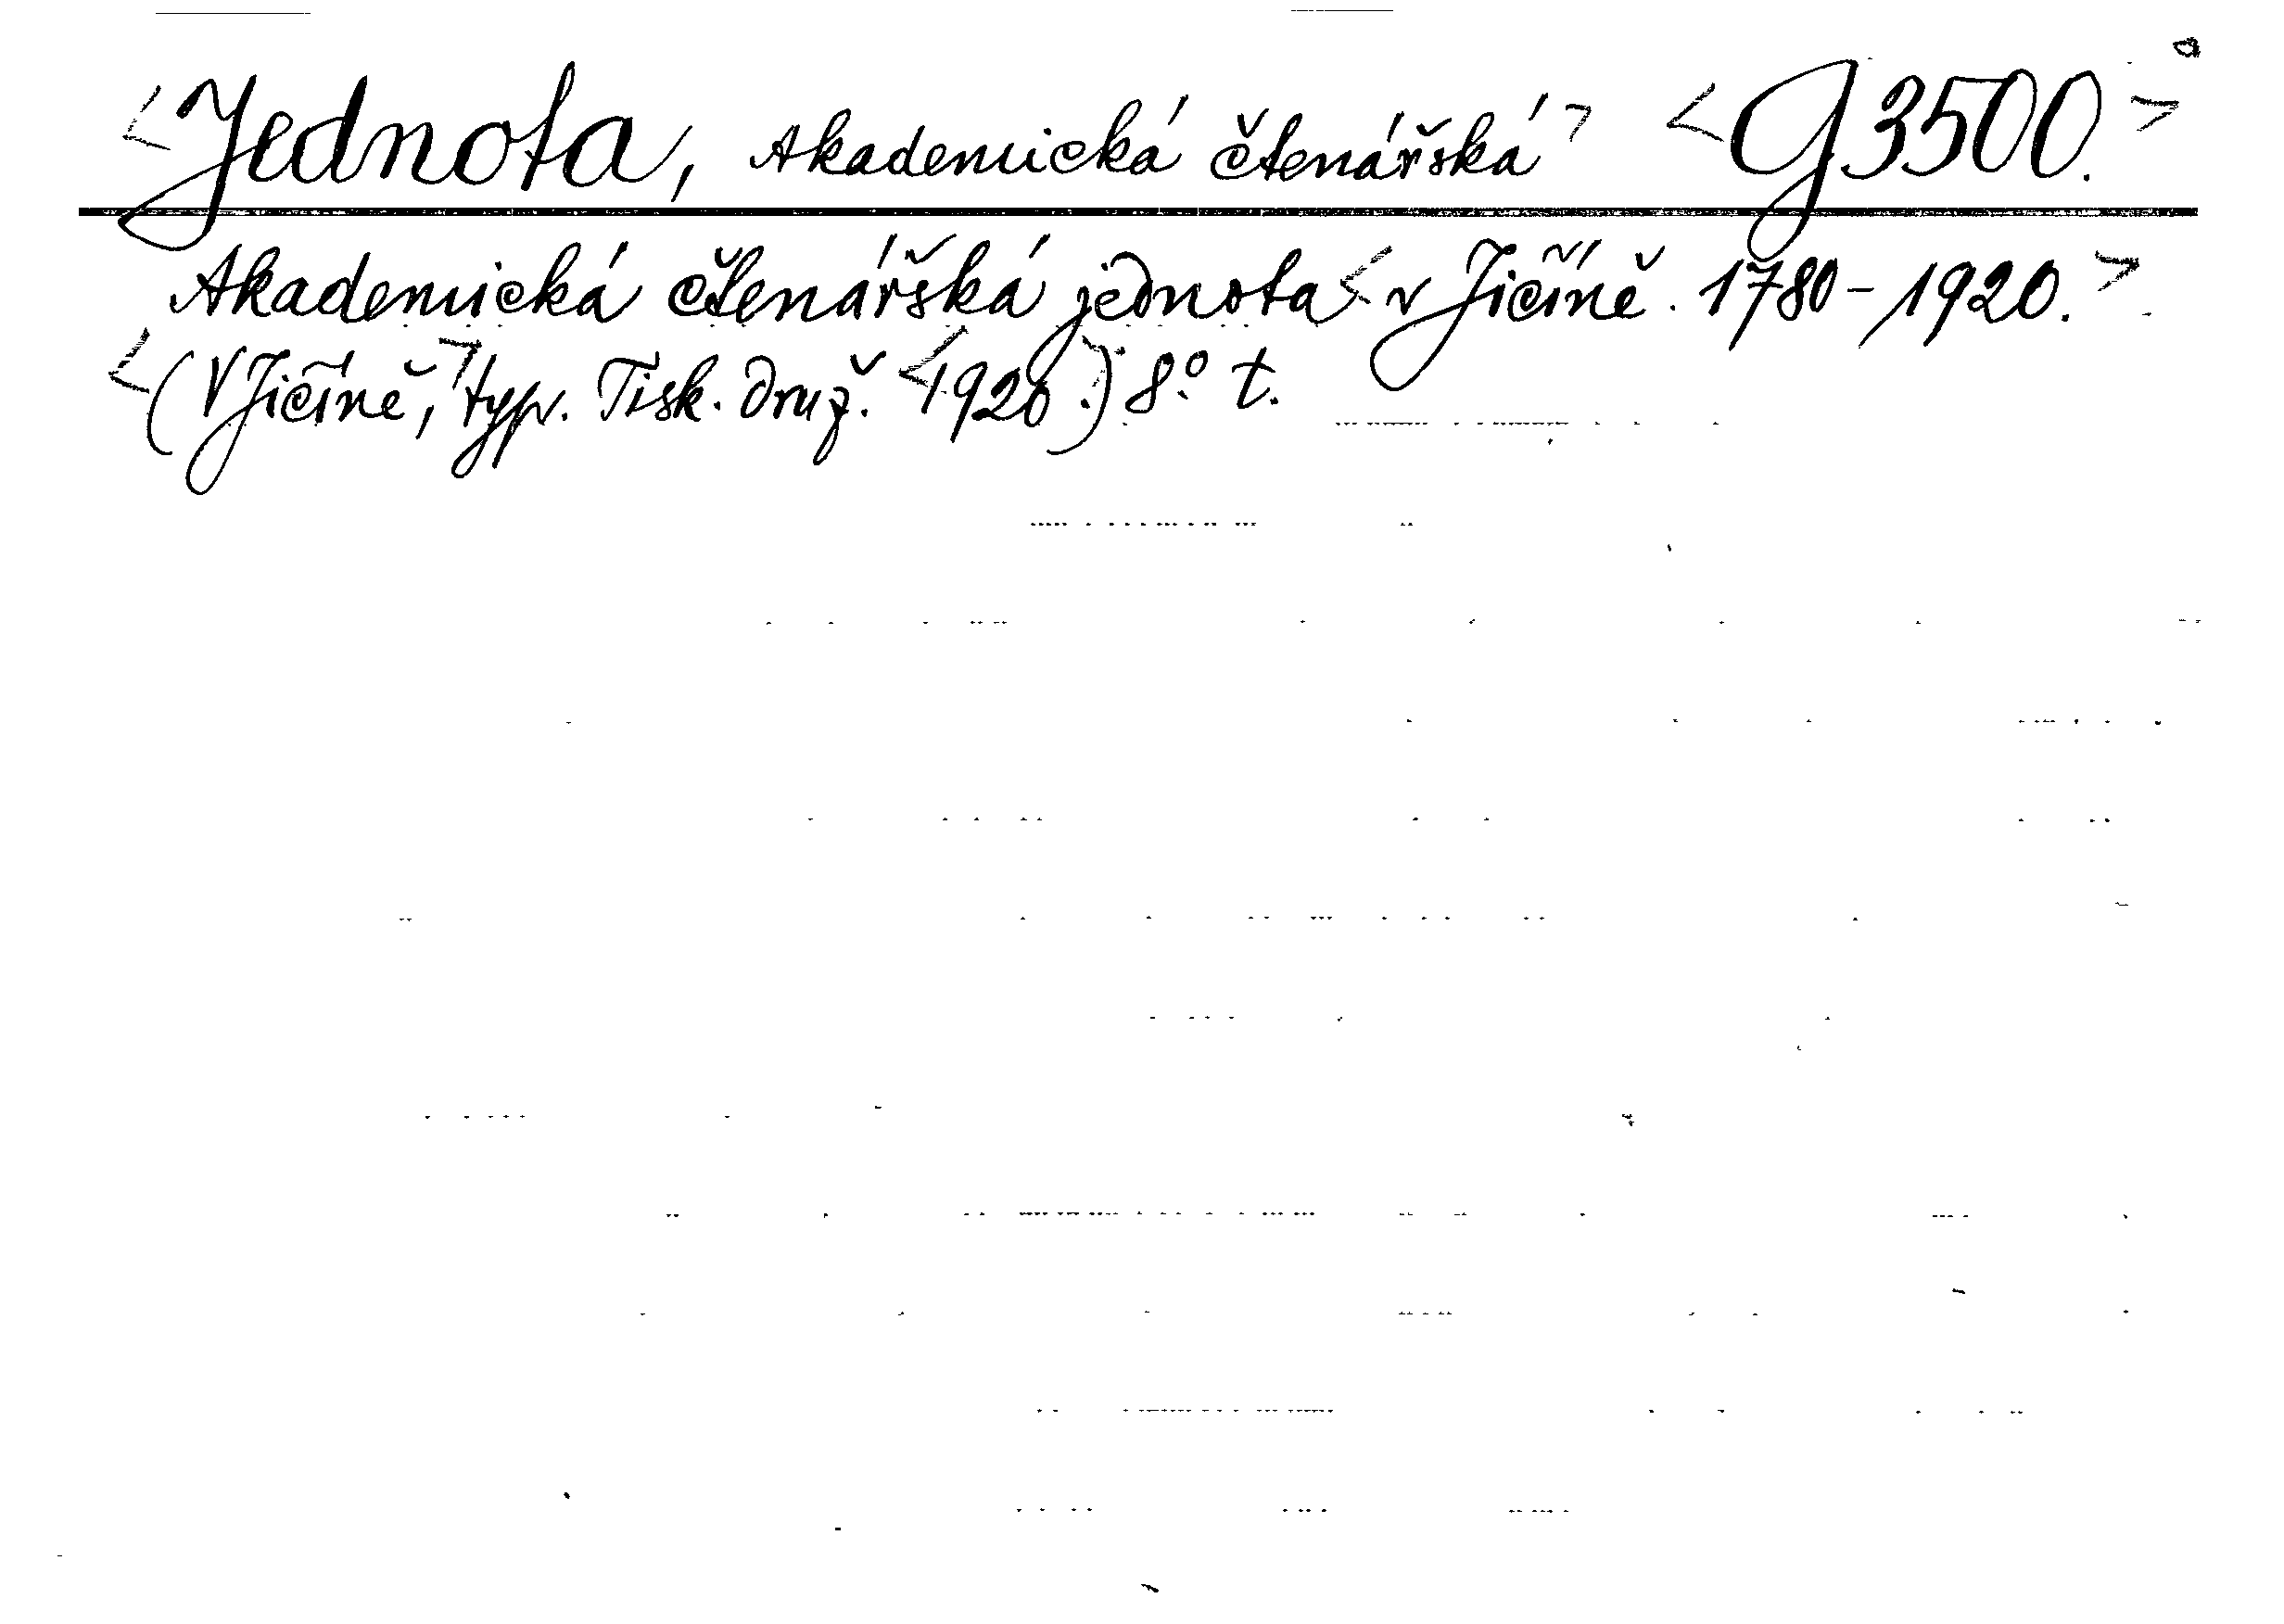 <Jednota, Akademická čtenářská> <G 3500.>
Akademická čtenářská jednota <v Jičíně. 1780-1920.>
<(V Jičíně,> typ. Tisk. druž. <1920.)> 8.º t.